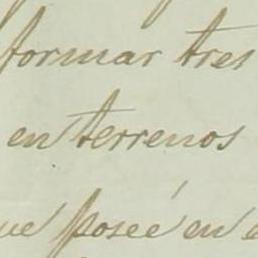 formar tres
en terrenos
que posee en